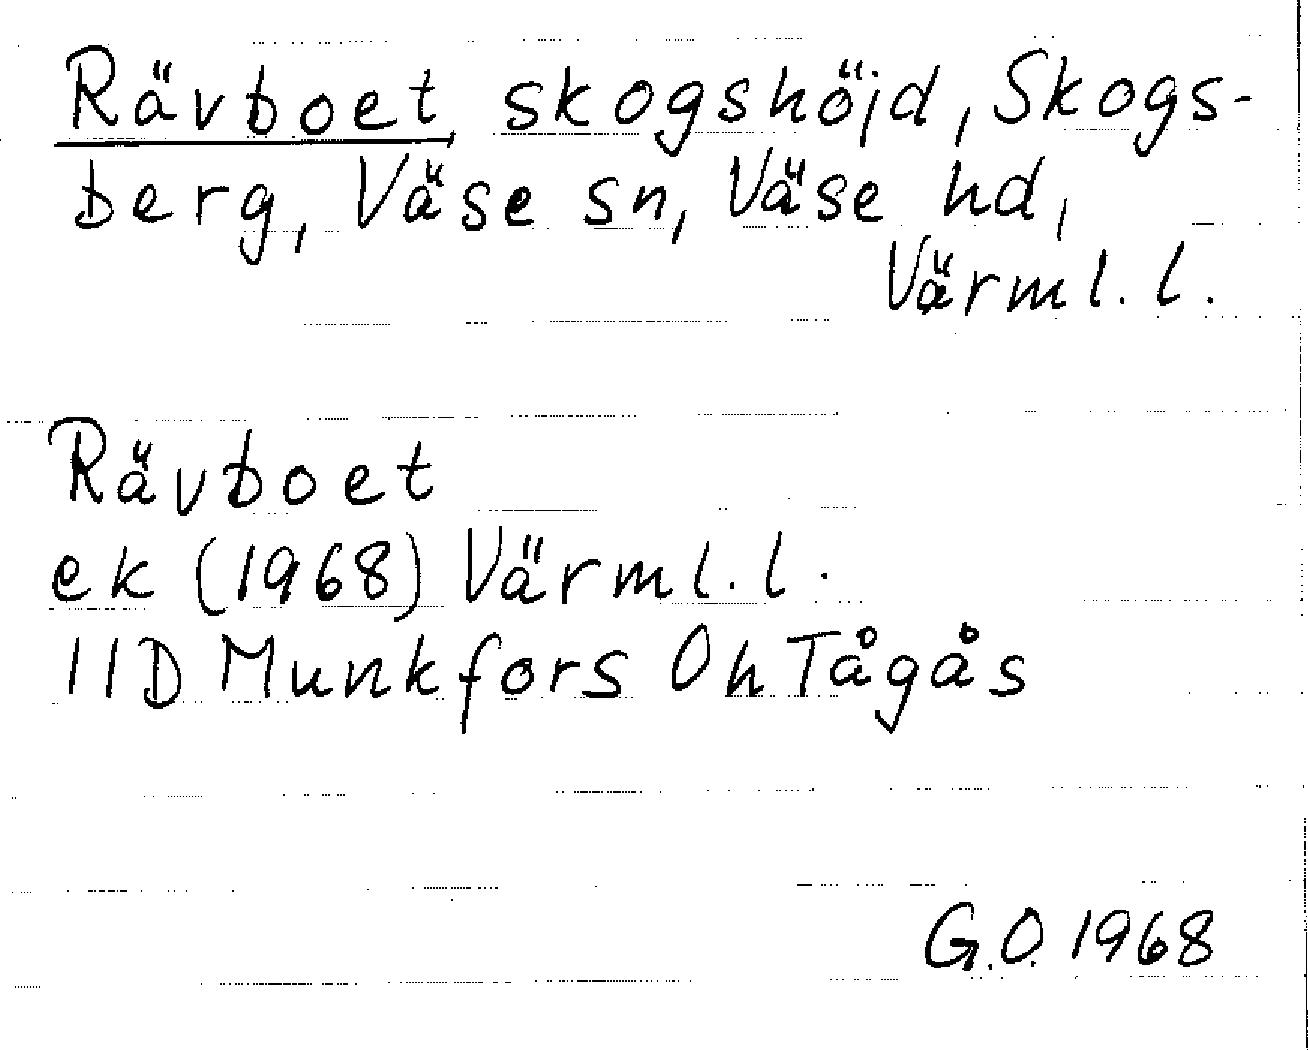 Rävboet, skogshöjd, Skogs-
berg, Väse sn, Väse hd,
Värml. l.
Rävboet
ek (1968) Värml. l.
11D Munkfors Oh Tågås
G.O. 1968